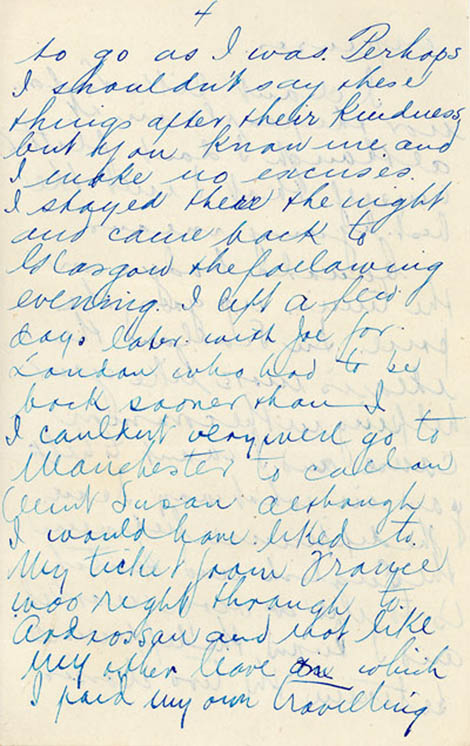 4
to go as I was. Perhaps
I shouldn't say these
things after their kindness,
but you know me and
I make no excuses.
I stayed there the night
and came back to
Glasgow the following
evening. I left a few
days later with Joe for
London who had to be
back sooner than I
I couldn't very well go to
Manchester to call on
Aunt Susan although
I would have liked to.
My ticket from France
was right through to
Ardrossan and not like
my other leave on which
I paid my own travelling